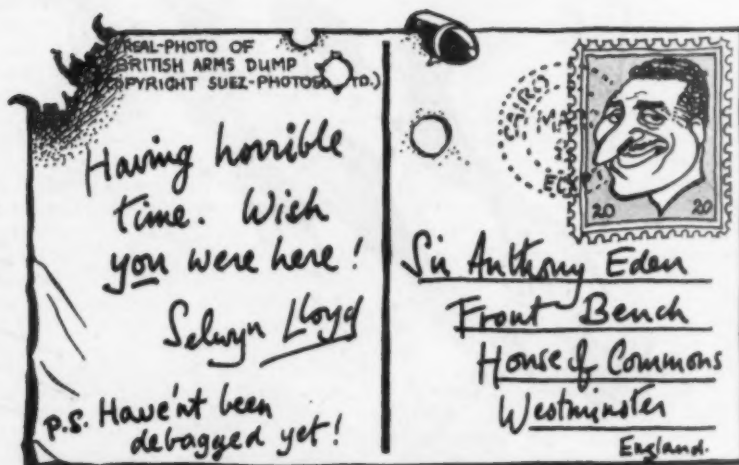 REAL-PHOTO OF
BRITISH ARMS DUMP
OPYRIGHT SUEZ-PHOTOS TD.)
Having horrible
time. Wish
you were here!
Selwyn Lloyd
P.S. Have'nt been
debagged yet!
CAIRO
EGYP
20 20
Sir Anthony Eden
Front Bench
House of Commons
Westminster
England.